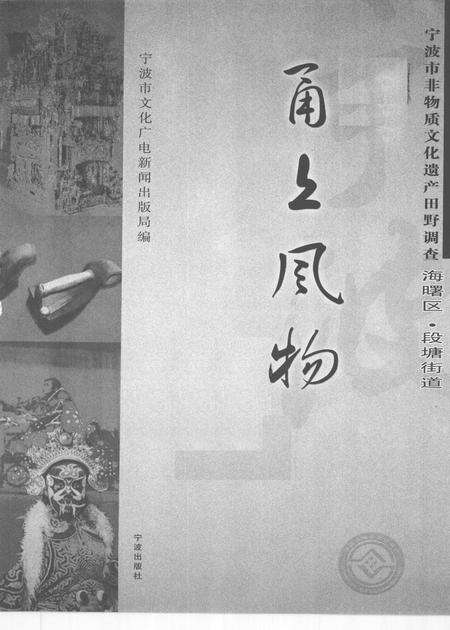 宁波市非物质文化遗产田野调查 海曙区·段塘街道
甬上风物
宁波市文化广电新闻出版局编
宁波出版社